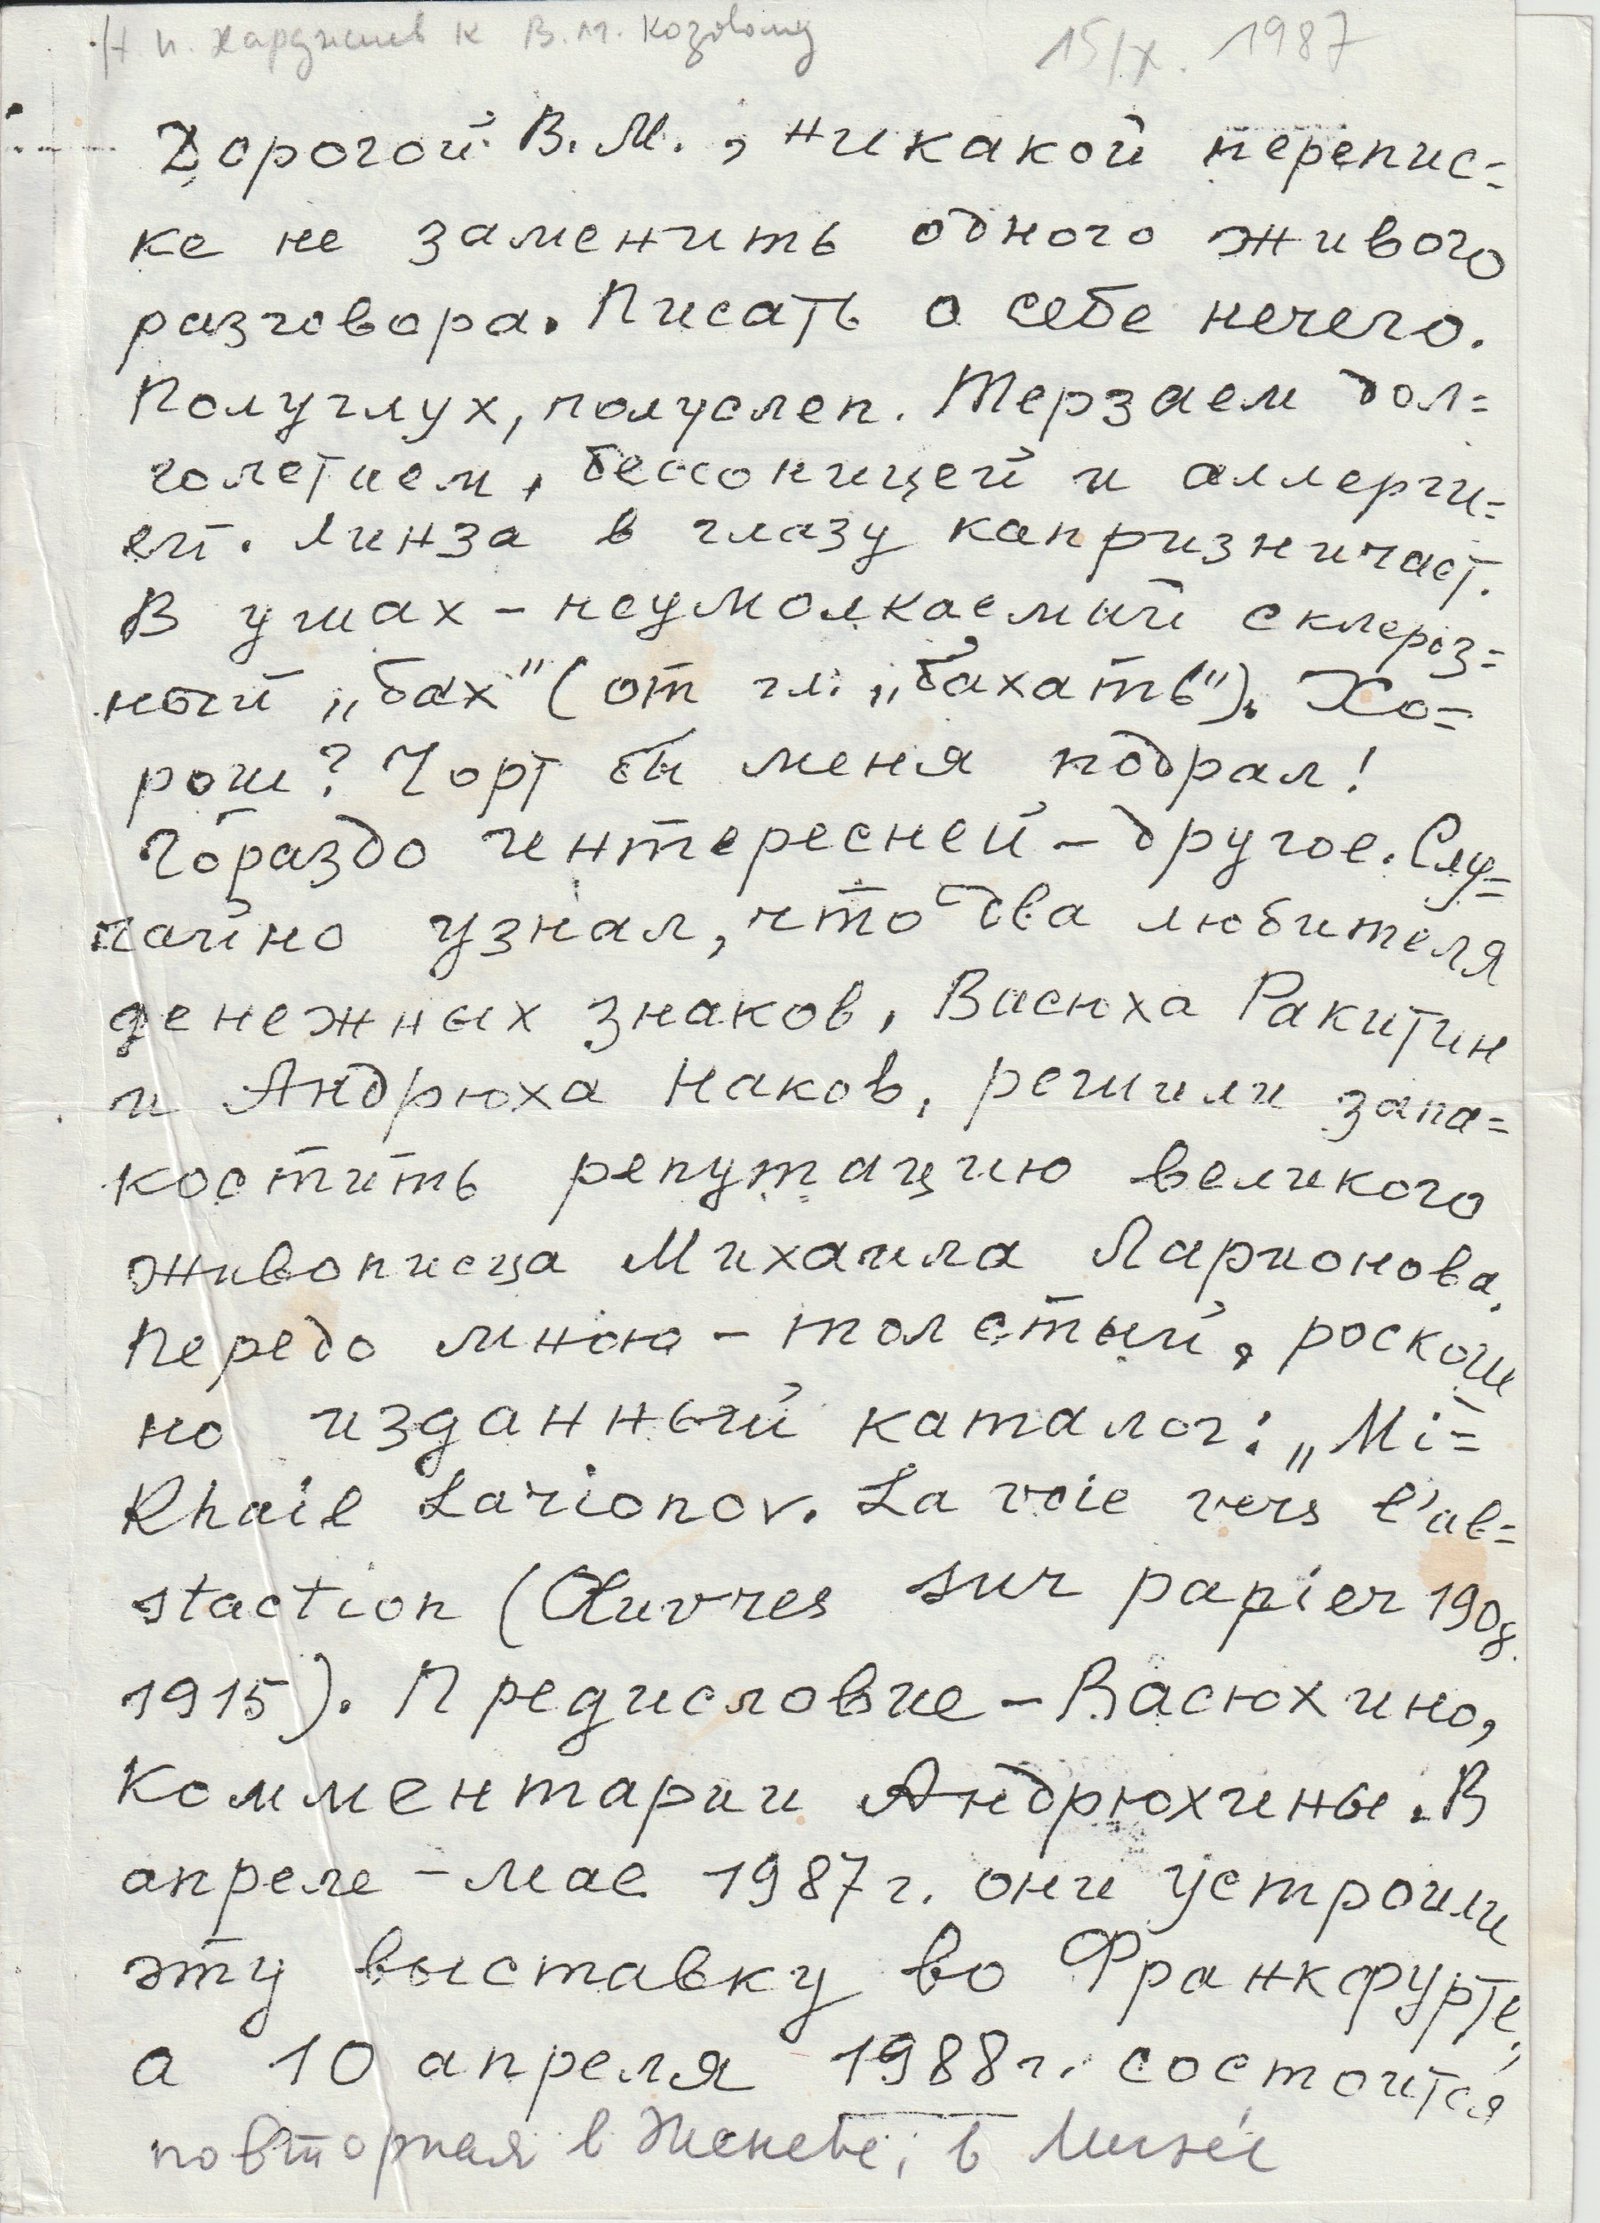 Н. И. Харджиев к В. М. Козовому 15/X. 1987
Дорогой В. М., никакой перепис=
ке не заменить одного живого
разговора. Писать о себе нечего.
Полуглух, полуслеп. Терзаем дол=
голетием, бессоницей и аллерги=
ей. Линза в глазу капризничает.
В ушах – неумолкаемый склероз=
ный „бах" (от гл. „бахать"). Хо=
рош? Чорт бы меня подрал!
Гораздо интересней – другое. Слу=
чайно узнал, что два любителя
денежных знаков, Васюха Ракитин
и Андрюха Наков, решили запа=
костить репутацию великого
живописца Михаила Ларионова.
Передо мною – толстый, роскош
но изданный каталог: „Mi=
khail Larionov. La voie vers l'ab=
staction (Œuvres sur papier 1908
1915). Предисловие – Васюхино,
Комментарии Андрюхины. В
апреле – мае 1987 г. они устроили
эту выставку во Франкфурте,
а 10 апреля 1988 г. состоится
повторная в Женеве, в Musée